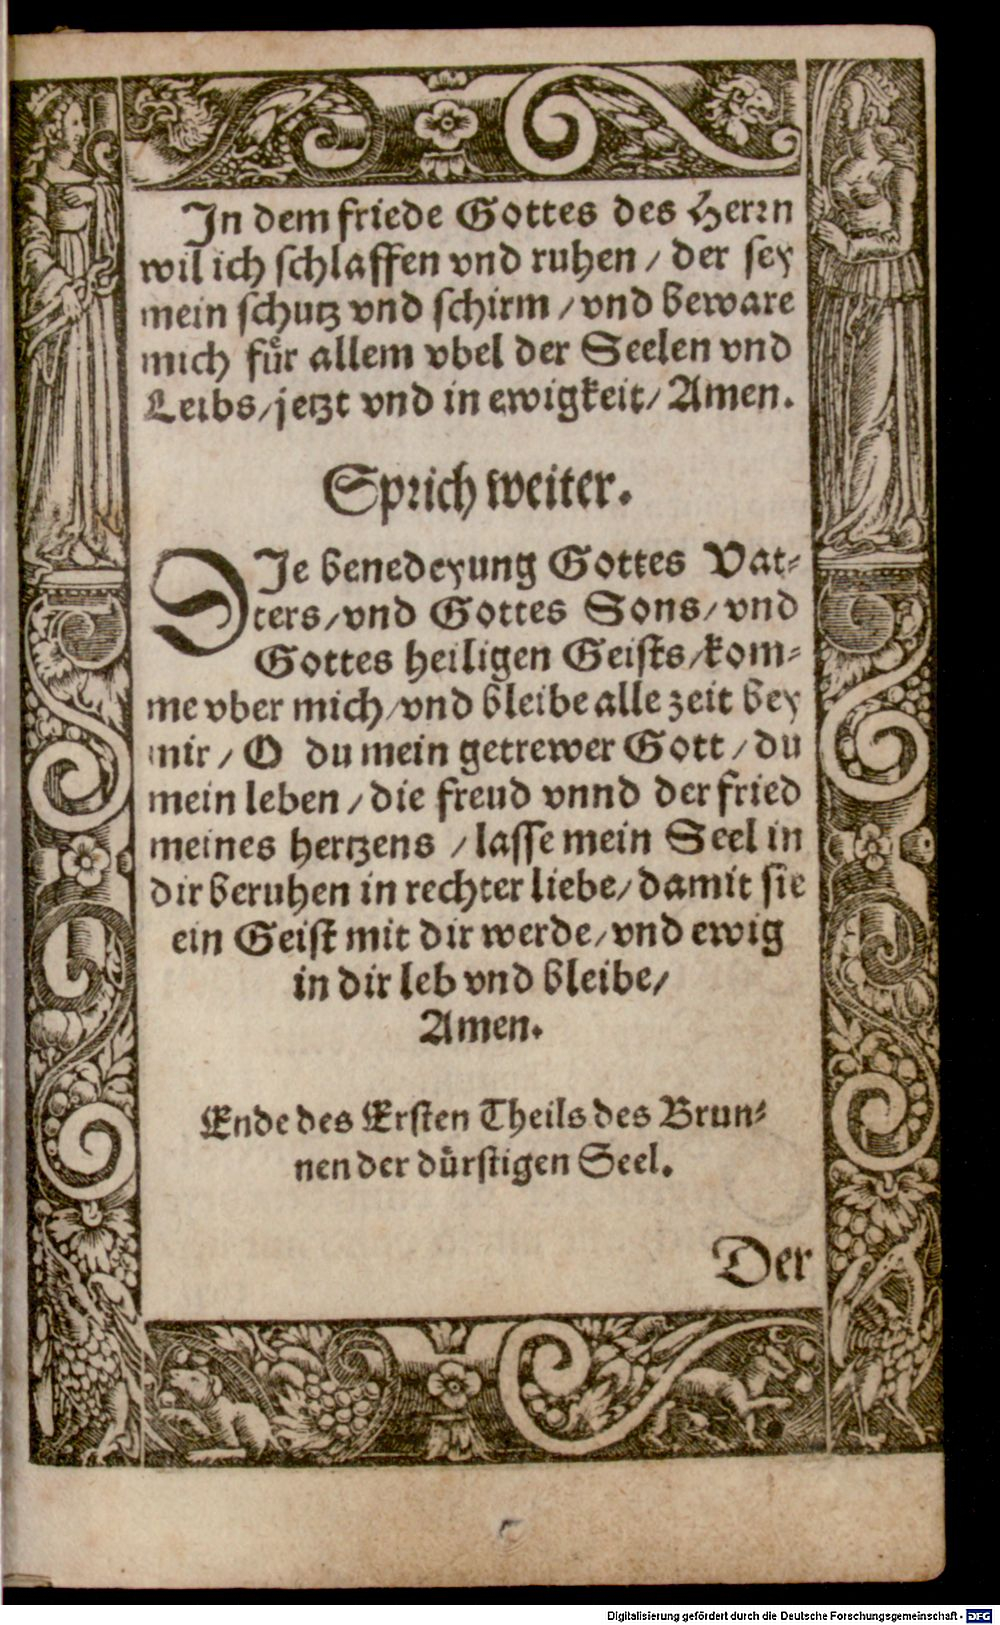 In dem friede Gottes des Herrn
wil ich schlaffen vnd ruhen / der sey
mein schutz vnd schirm / vnd beware
mich fuͤr allem vbel der Seelen vnd
Leibs / jetzt vnd in ewigkeit / Amen.
Sprich weiter.
DIe benedeyung Gottes Vat⸗
ters / vnd Gottes Sons / vnd
Gottes heiligen Geists / kom⸗
me vber mich / vnd bleibe alle zeit bey
mir / O du mein getrewer Gott / du
mein leben / die freud vnnd der fried
meines hertzens / lasse mein Seel in
dir beruhen in rechter liebe / damit sie
ein Geist mit dir werde / vnd ewig
in dir leb vnd bleibe /
Amen.
Ende des Ersten Theils des Brun⸗
nen der duͤrstigen Seel.
Der
Digitalisierung gefördert durch die Deutsche Forschungsgemeinschaft - DFG